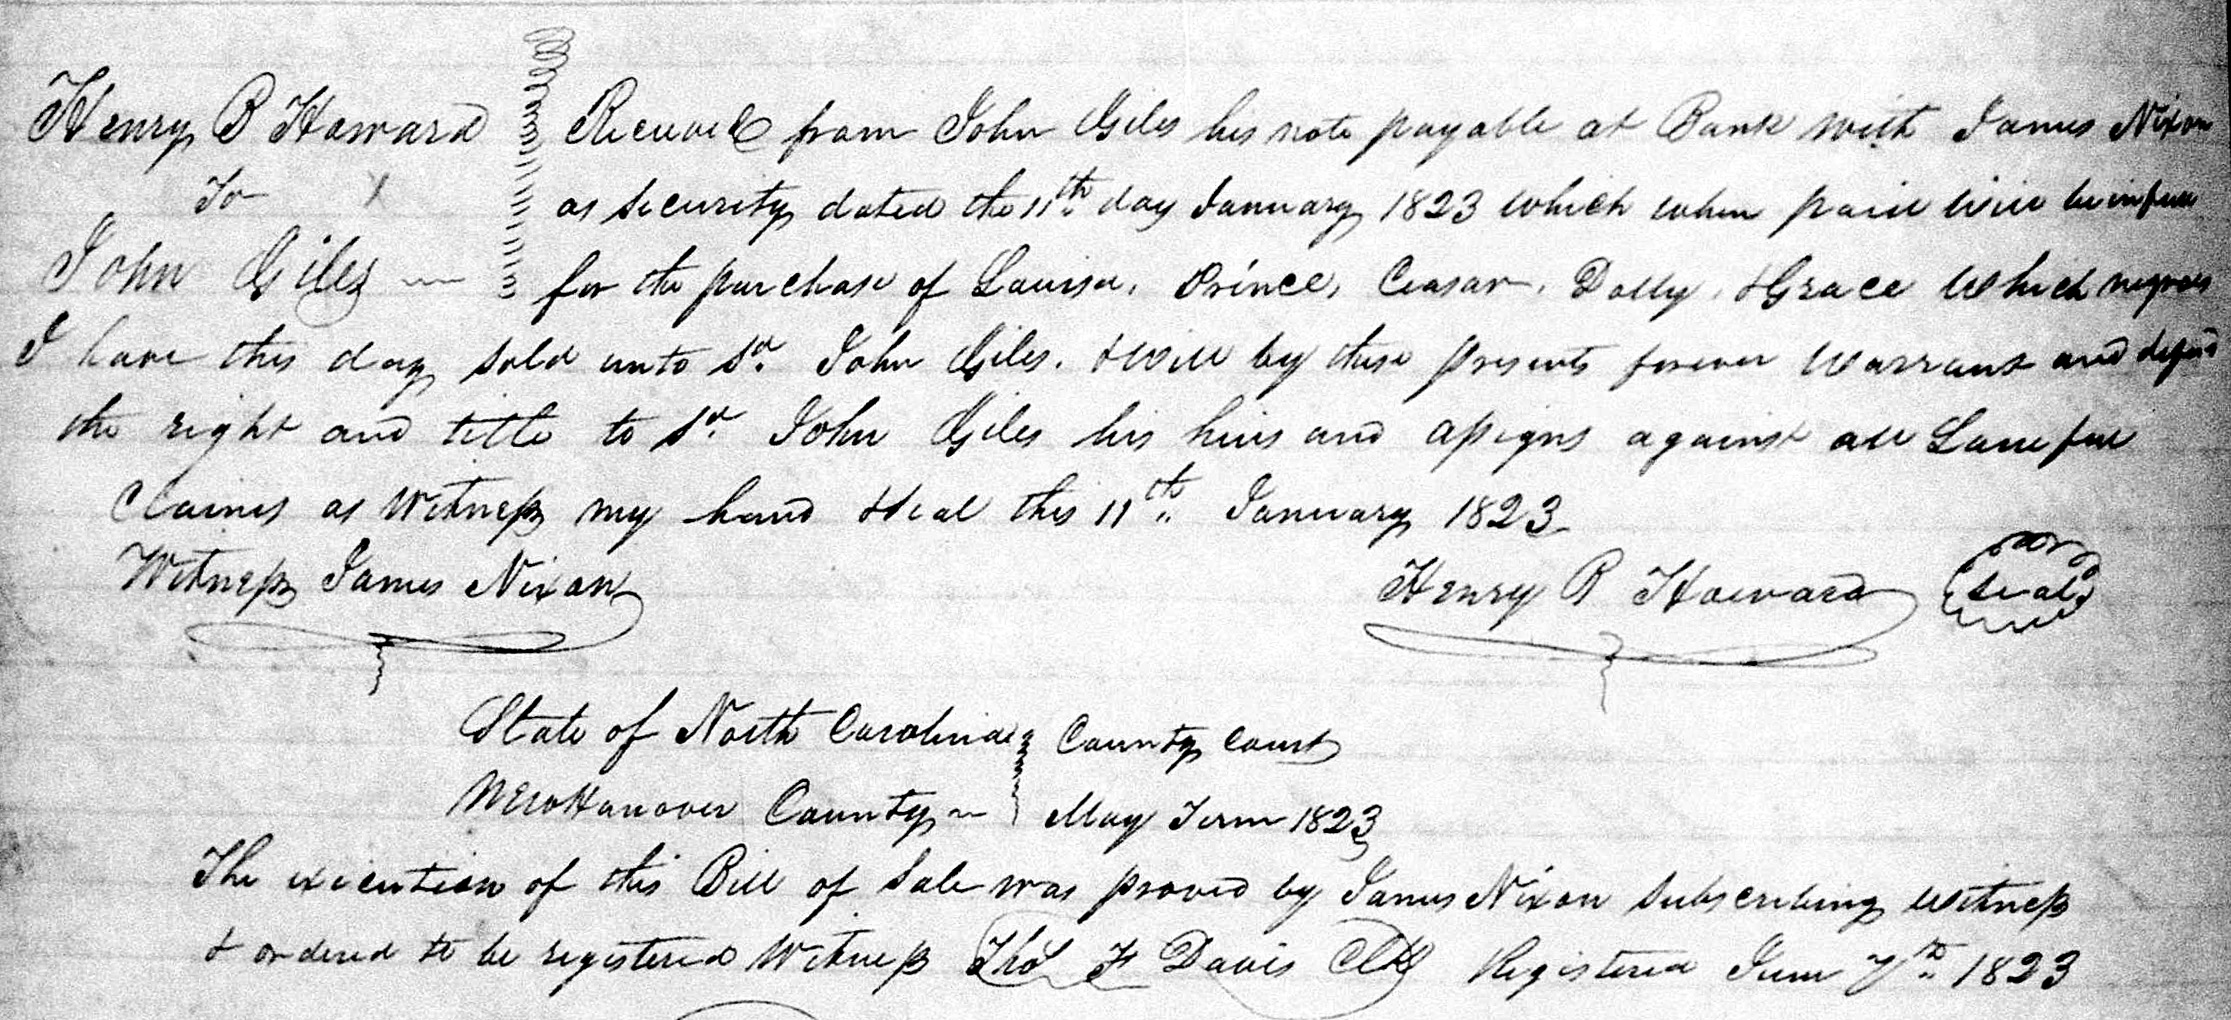 Henry B Howard Received from John Giles his note payable at Bank with James Nixon
To as security dated the 11th day January 1823 which when paid will be in full
John Giles for the purchase of Louisa, Prince, Ceasar, Dolly, & Grace which negroes
I have this day sold unto Sd. John Giles. & will by these presents forever warrant and defend
the right and title to Sd. John Giles his heirs and assigns against all Lawful
Claims as Witness my hand & seal this 11th January 1823
Witness James Nixon Henry B Howard Seal
State of North Carolina County Court
New Hanover County May Term 1823
The execution of this Bill of Sale was proved by James Nixon subscribing witness
& ordered to be registered Witness Thos F Davis Clk Registered June 7th 1823